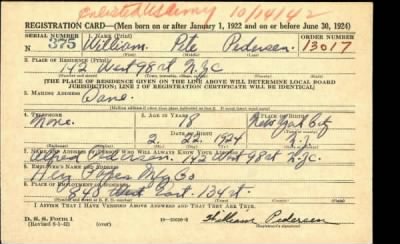 Enlisted US Army 10/19/42
REGISTRATION CARD—(Men born on or after January 1, 1922 and on or before June 30, 1924)
SERIAL NUMBER 1. NAME (Print) ORDER NUMBER
N 375 William Pete Pedersen 13017
(First) (Middle) (Last)
2. PLACE OF RESIDENCE (Print)
142 West 98 st N.Y.C
[THE PLACE OF RESIDENCE GIVEN ON THE LINE ABOVE WILL DETERMINE LOCAL BOARD
JURISDICTION; LINE 2 OF REGISTRATION CERTIFICATE WILL BE IDENTICAL]
3. MAILING ADDRESS
Same
4. TELEPHONE 5. AGE IN YEARS 6. PLACE OF BIRTH
None 18 New York City
DATE OF BIRTH
2 22 1924 N.Y.
7. NAME AND ADDRESS OF PERSON WHO WILL ALWAYS KNOW YOUR ADDRESS
Alfred Pedersen 142 West 98 st N.Y.C.
8. EMPLOYER'S NAME AND ADDRESS
Mfg Co
9. PLACE OF EMPLOYMENT OR BUSINESS
840 East 134 st
I AFFIRM THAT I HAVE VERIFIED ABOVE ANSWERS AND THAT THEY ARE TRUE.
D. S. S. Form 1
(over)
William Pedersen
(Registrant's signature)